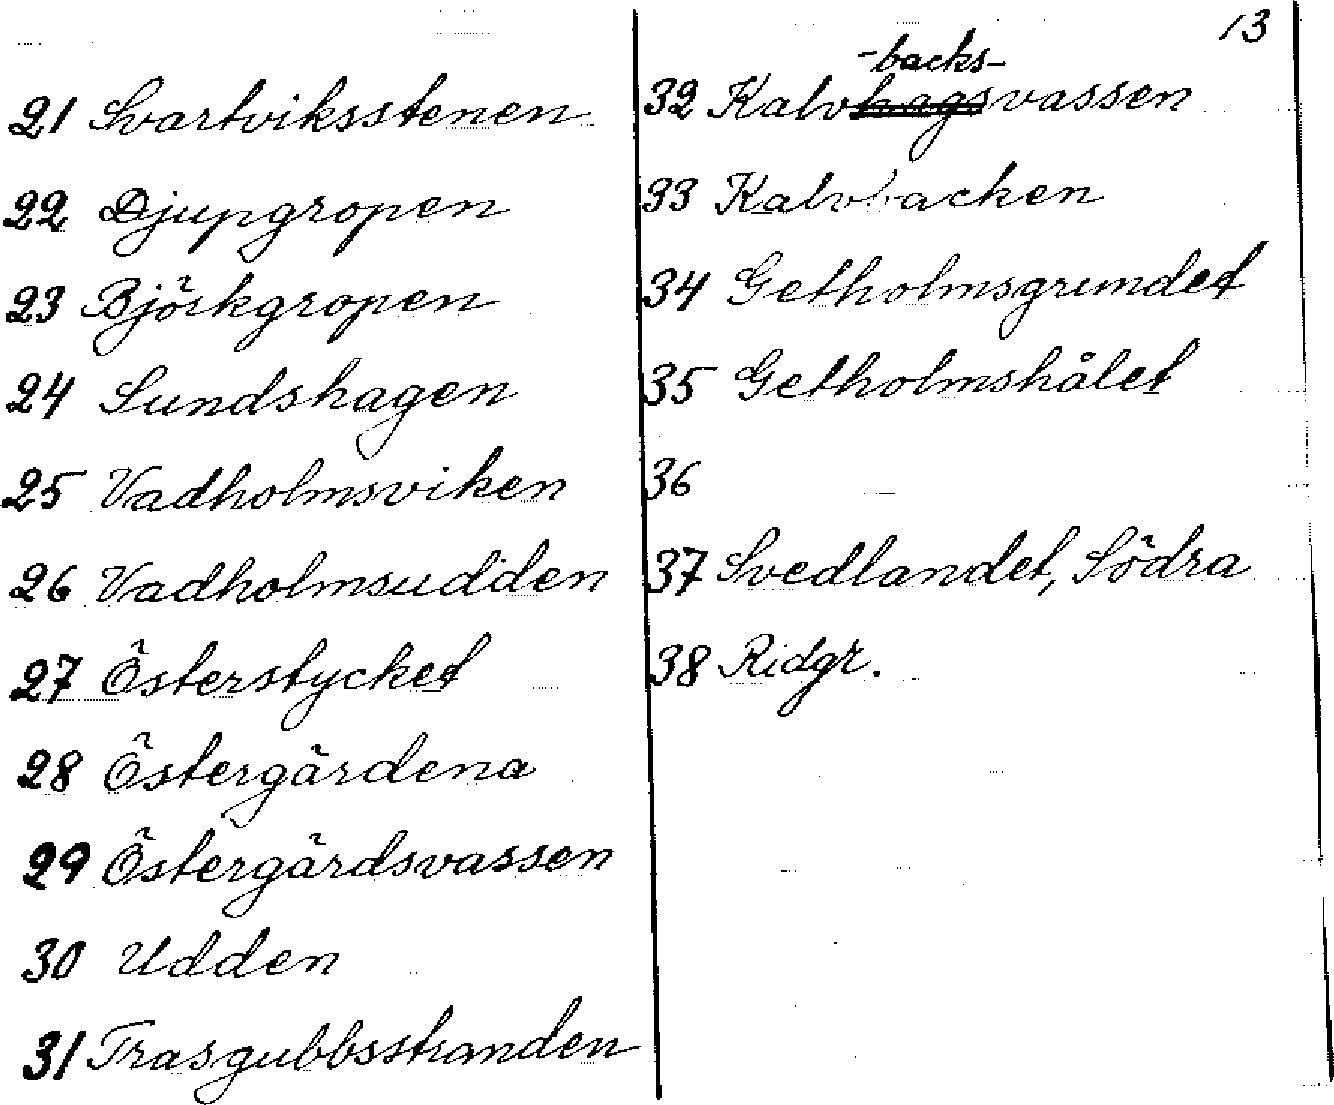 13
21 Svartviksstenen
22 Djupgropen
23 Björkgropen
24 Sundshagen
25 Vadholmsviken
26 Vadholmsudden
27 Österstycket
28 Östergärdena
29 Östergärdsvassen
30 Udden
31 Trasgubbsstranden
-backs-
32 Kalvhagsvassen
33 Kalvbacken
34 Getholmsgrundet
35 Getholmshålet
36
37 Svedlandet, Södra
38 Ridgr.